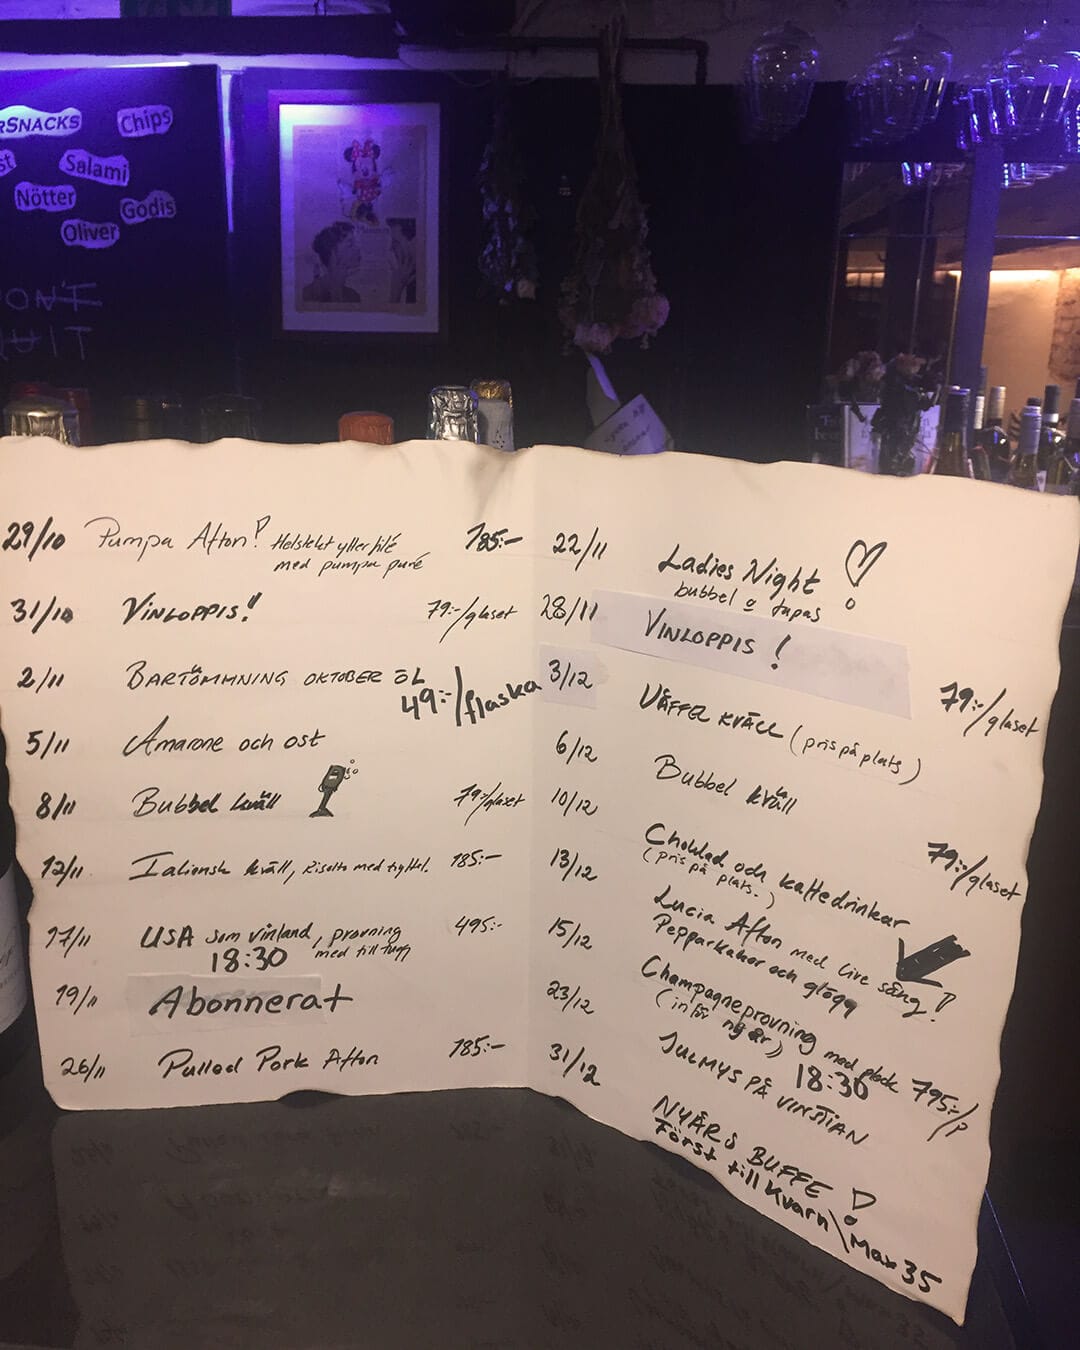 RSNACKS
Chips
st
Salami
Nötter
Godis
Oliver
QUIT
29/10 Pumpa Afton! Helstekt ytterfilé 185:-
med pumpa puré
31/10 VINLOPPIS! 79:-/glaset
2/11 BARTÖMMNING OKTOBER ÖL
49:-/flaska
5/11 Amarone och ost
8/11 Bubbel kväll 79:-/glaset
12/11 Italiensk kväll, Risotto med tryffel. 185:-
17/11 USA som vinland, provning 495:-
18:30 med tilltugg
19/11 Abonnerat
26/11 Pulled Pork Afton 185:-
22/11 Ladies Night !
bubbel o tapas
28/11 VINLOPPIS ! 79:-/glaset
3/12 VÅFFEL KVÄLL (pris på plats)
6/12 Bubbel kväll 79:-/glaset
10/12 Choklad och kaffedrinkar
(pris på plats-)
13/12 Lucia Afton med live sång!
Pepparkakor och glögg
15/12 Champagneprovning med plock 795:-/P
(inför nyår) 18:30
23/12 JULMYS PÅ VINSTIAN
31/12 NYÅRS BUFFE !
Först till kvarn \ Max 35